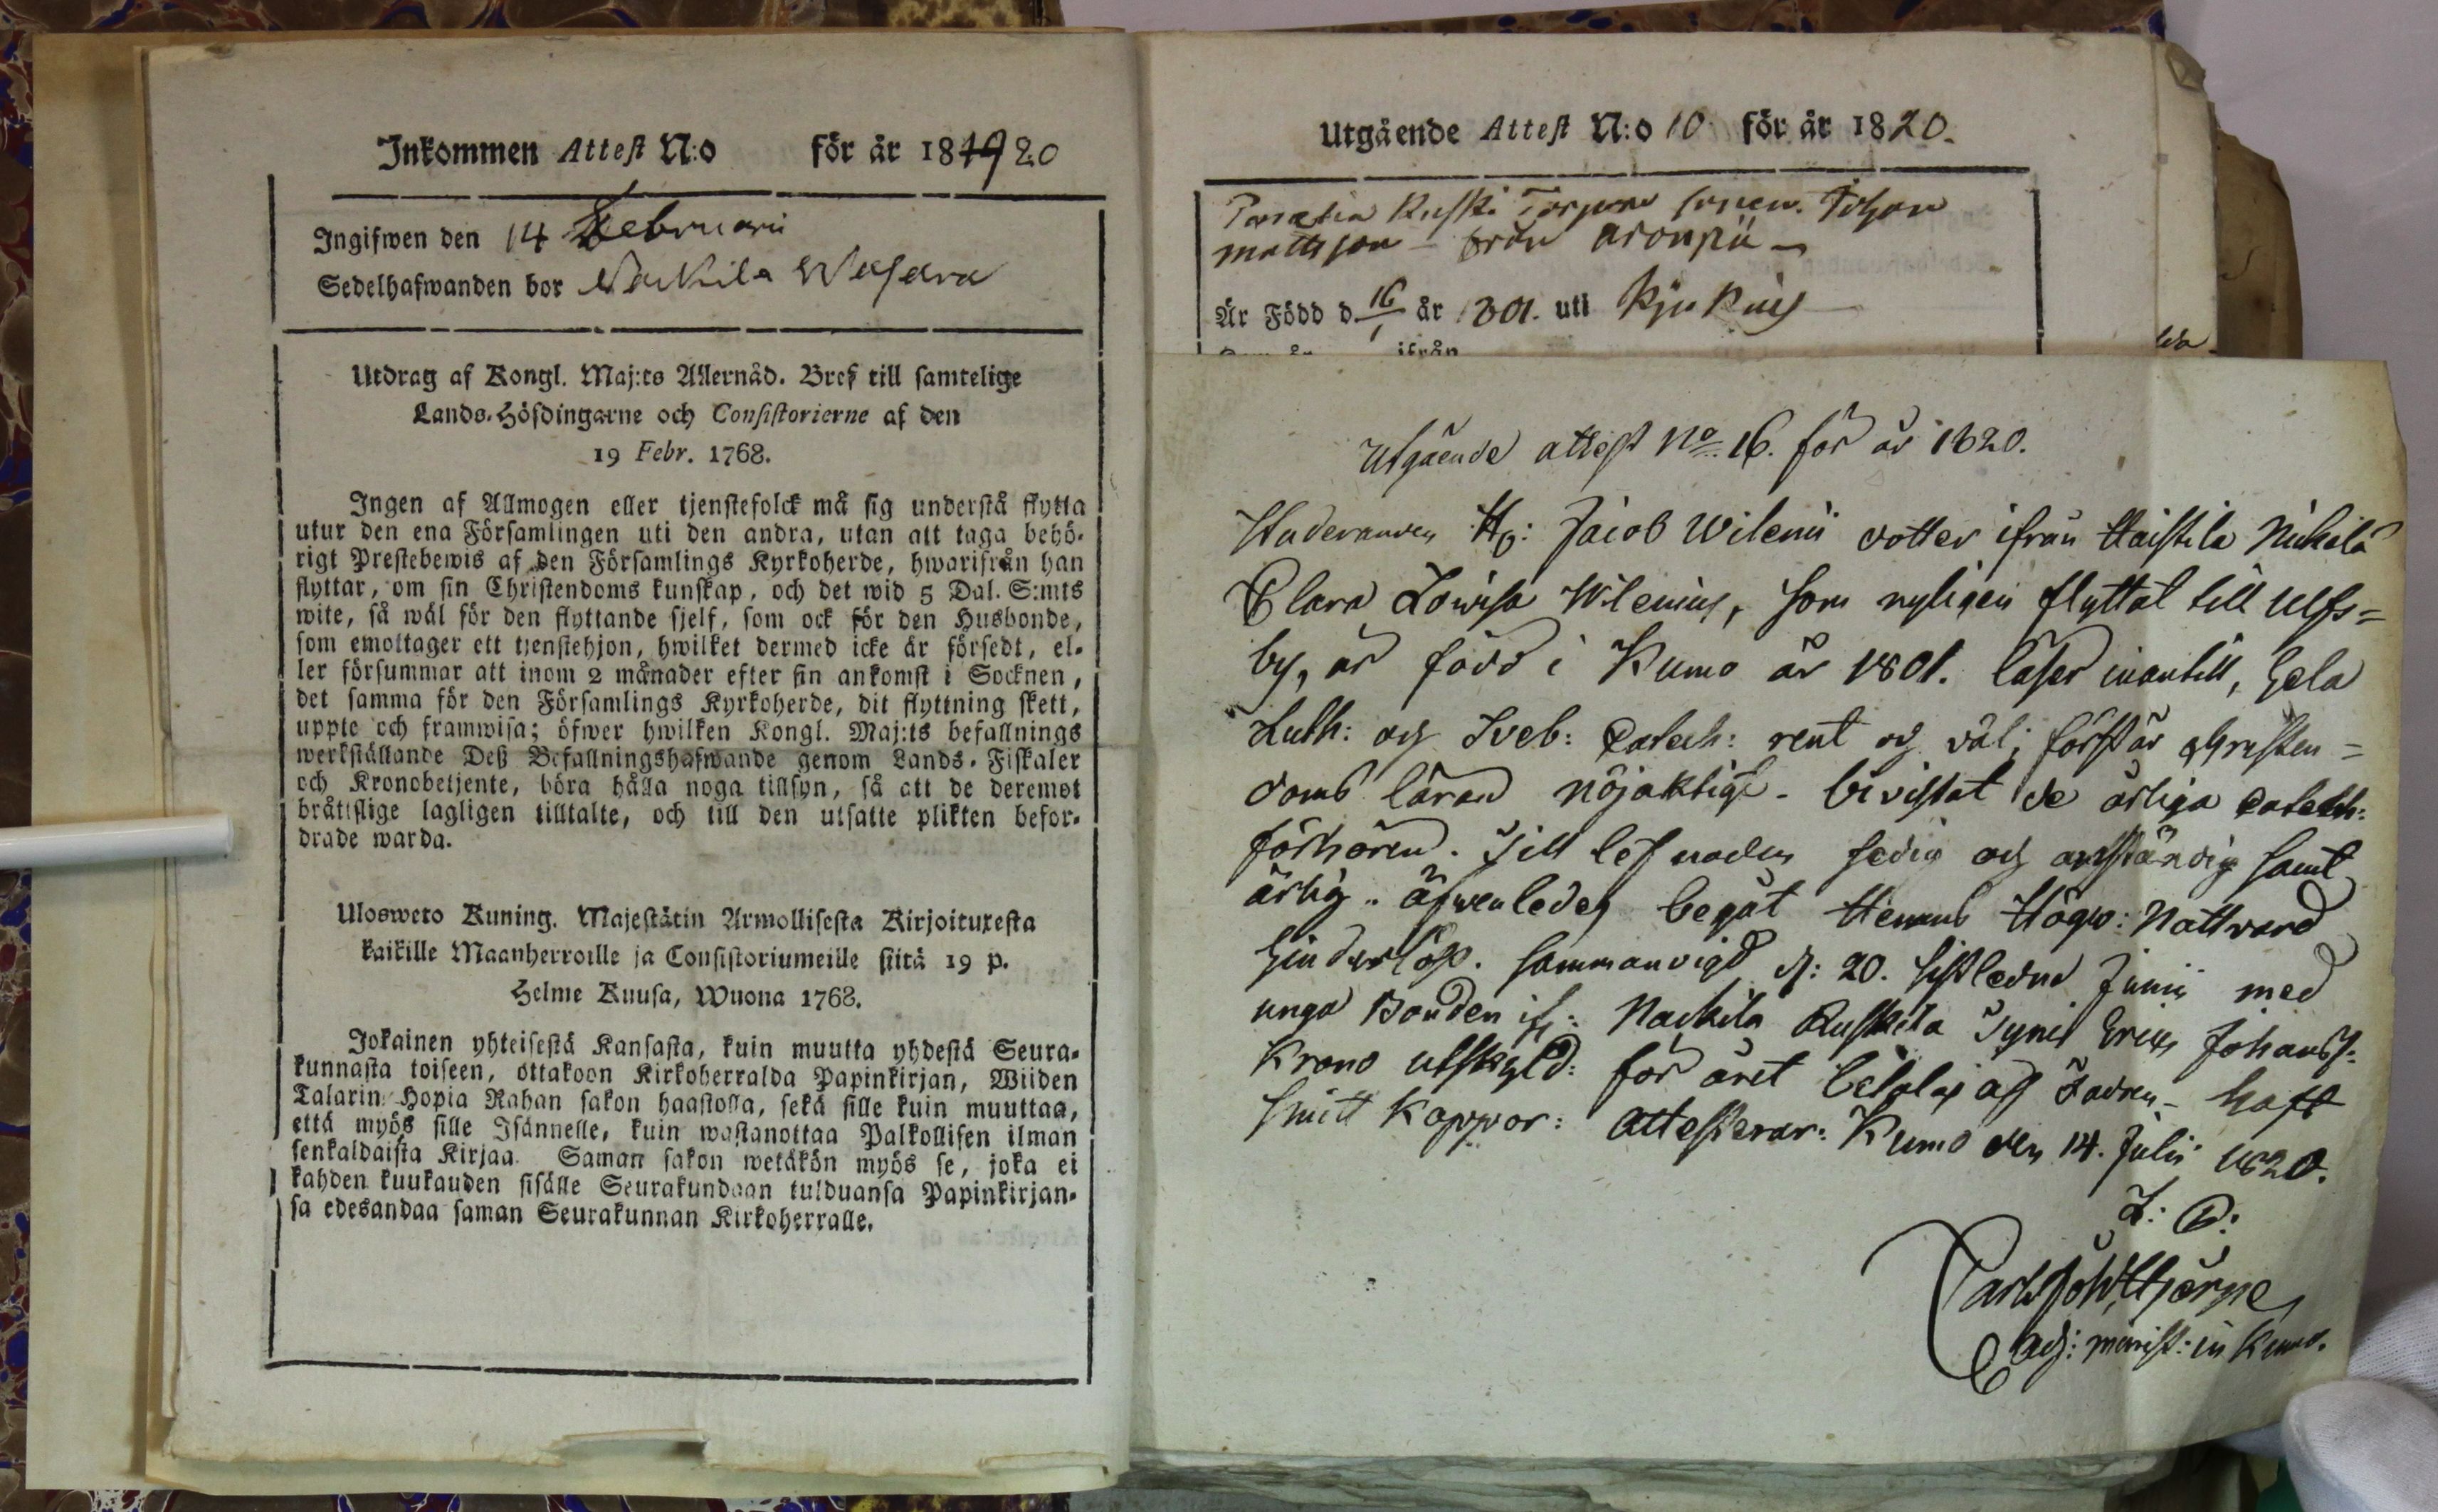 Inkommen Attest N:o för år 181920
Ingifwen den 14 Februarii
Sedelhafwanden bor Nackila Wasara
Utdrag af Kongl. Maj:ts Allernåd. Bref till samtelige
Lands-Höfdingarne och Consistorierne af den
19 Febr. 1768.
Ingen af Allmogen eller tjenstefolck må sig understå flytta
utur den ena Församlingen uti den andra, utan att taga behö-
rigt Prestebewis af den Församlings Kyrkoherde, hwarifrån han
flyttar, om sin Christendoms kunskap, och det wid 5 Dal. S:mts
wite, så wäl för den flyttande sjelf, som ock för den Husbonde,
som emottager ett tjenstehjon, hwilket dermed icke är försedt, el-
ler försummar att inom 2 månader efter sin ankomst i Socknen,
det samma för den Församlings Kyrkoherde, dit flyttning skett,
uppte och framwisa; öfwer hwilken Kongl. Maj:ts befallnings
werkställande Deß Befallningshafwande genom Lands-Fiskaler
och Kronobetjente, böra hålla noga tillsyn, så att de deremot
bråttslige lagligen tilltalte, och till den utsatte plikten befor-
drade warda.
Ulosweto Kuning. Majestätin Armollisesta Kirjoituxesta
kaikille Maanherroille ja Consistoriumeille siitä 19 p.
Helme Kuusa, Wuona 1768.
Jokainen yhteisestä Kansasta, kuin muutta yhdestä Seura-
kunnasta toiseen, ottakoon Kirkoherralda Papinkirjan, Wiiden
Talarin Hopia Rahan sakon haastolla, sekä sille kuin muuttaa,
että myös sille Isännelle, kuin wastanottaa Palkollisen ilman
senkaldaista Kirjaa. Saman sakon wetäkön myös se, joka ei
kahden kuukauden sisälle Seurakundaan tulduansa Papinkirjan-
sa edesandaa saman Seurakunnan Kirkoherralle.
Utgående Attest N:o 10 för år 1820.
Ruski Torpare sonen Johan
mattsson från
Är Född d. 16/1 år 1801. uti Kjukais
ifrån
Utgående attest No. 16. för år 1820.
Studeranden Hr: Jacob Wilenii dotter ifrån Haistila Nickilä
Clara Lowisa Wilenius, som nyligen flyttat till Ulfs=
by, är född i Kumo år 1801. läser innantill, hela
Luth: och Sveb: Catech: rent och väl; förstår Christen=
doms läran nöjaktigt. bivistat de årliga Catech:
förhören. Till lefnaden sedig och anständig samt
ärlig. äfwenledes begåt Herrans Högw: Nattvard
hinderlöst. sammanvigd d: 20. sistledne Junii med
unga Bonden ifr: Nackila Ruskila Tynis Erich Johanss:
Krono utskyld: för året betalas af Fadren. haft
smitt Koppor: attesterar: Kumo den 14. Julii 1820.
Carl Joh. Hjerpe
adj: minist: in Kumo.